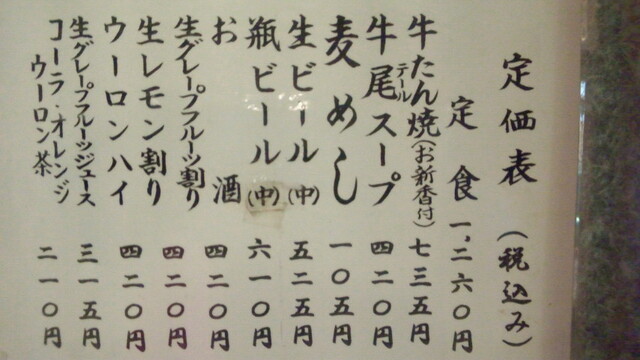 定価表（税込み）
定食 一、二六〇円
牛たん焼（お新香付） 七三五円
牛尾スープ 四二〇円
テール
麦めし 一〇五円
生ビール（中） 五二五円
瓶ビール（中） 六一〇円
お酒 四二〇円
生グレープフルーツ割り 四二〇円
生レモン割り 四二〇円
ウーロンハイ 四二〇円
生グレープフルーツジュース 三一五円
コーラ・オレンジ
ウーロン茶 二一〇円